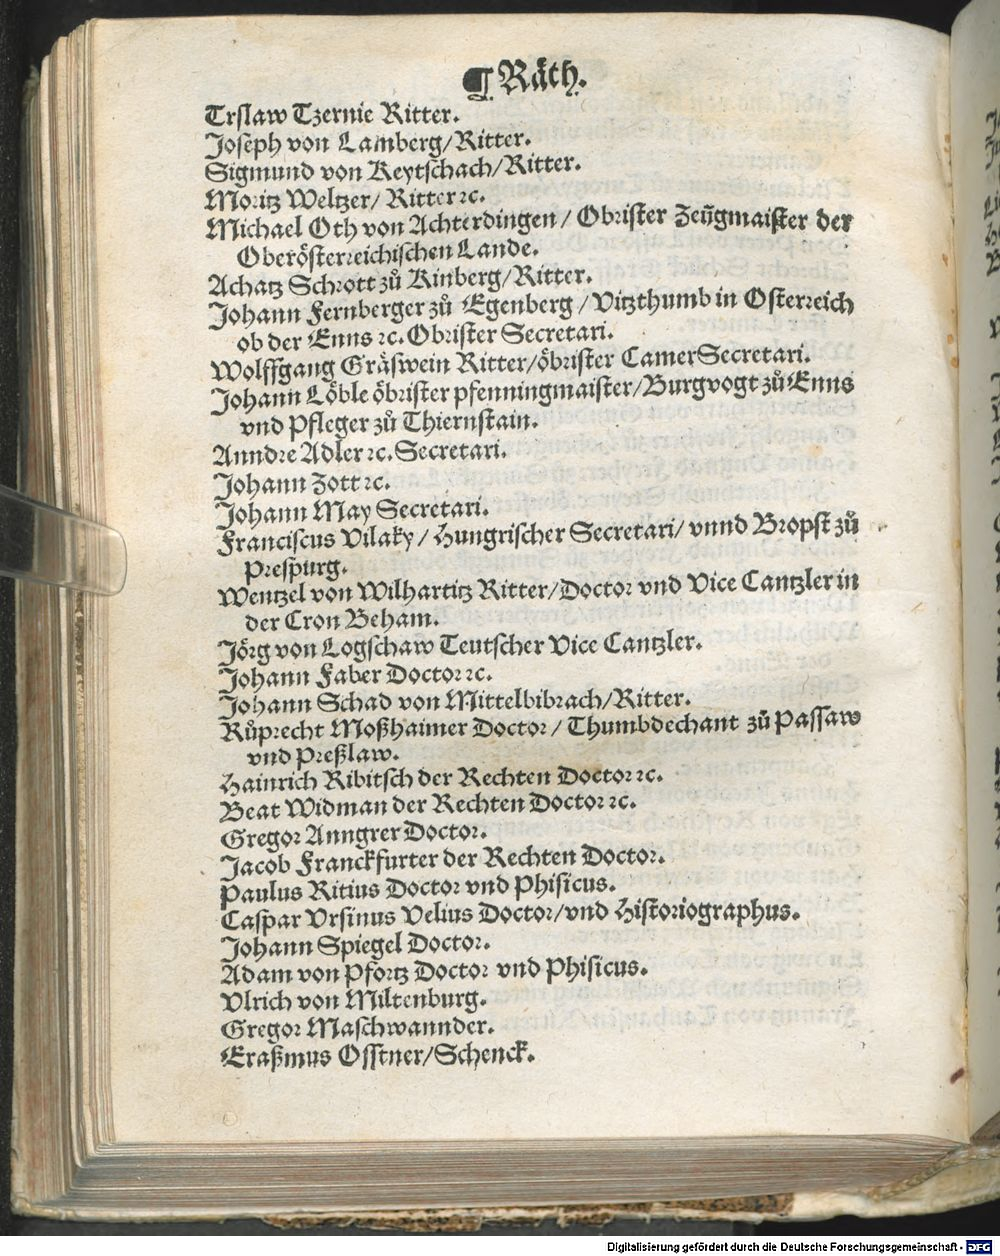 ¶ Räth.
Trslaw Tzernie Ritter.
Joseph von Lamberg/Ritter.
Sigmund von Keytschach/Ritter.
Moritz Weltzer/ Ritter ꝛc.
Michael Oth von Achterdingen / Obrister Zeügmaister der
Oberösterreichischen Lande.
Achatz Schrott zů Kinberg/Ritter.
Johann Fernberger zů Egenberg / Vitzthumb in Osterreich
ob der Enns ꝛc. Obrister Secretari.
Wolffgang Gräswein Ritter/öbrister CamerSecretari.
Johann Löble öbrister pfenningmaister/Burgvogt zů Enns
vnd Pfleger zů Thiernstain.
Anndre Adler ꝛc. Secretari.
Johann Zott ꝛc.
Johann May Secretari.
Franciscus Vilaky / Hungrischer Secretari/ vnnd Bropst zů
Prespurg.
Wentzel von Wilhartitz Ritter/Doctor vnd Vice Cantzler in
der Cron Beham.
Jörg von Logschaw Teutscher Vice Cantzler.
Johann Faber Doctor ꝛc.
Johann Schad von Mittelbibrach/Ritter.
Růprecht Moßhaimer Doctor / Thumbdechant zů Passaw
vnd Preßlaw.
Hainrich Ribitsch der Rechten Doctor ꝛc.
Beat Widman der Rechten Doctor ꝛc.
Gregor Anngrer Doctor.
Jacob Franckfurter der Rechten Doctor.
Paulus Ritius Doctor vnd Phisicus.
Caspar Vrsinus Velius Doctor/vnd Historiographus.
Johann Spiegel Doctor.
Adam von Pfortz Doctor vnd Phisicus.
Vlrich von Miltenburg.
Gregor Maschwannder.
Eraßmus Osstner/Schenck.
Digitalisierung gefördert durch die Deutsche Forschungsgemeinschaft - DFG